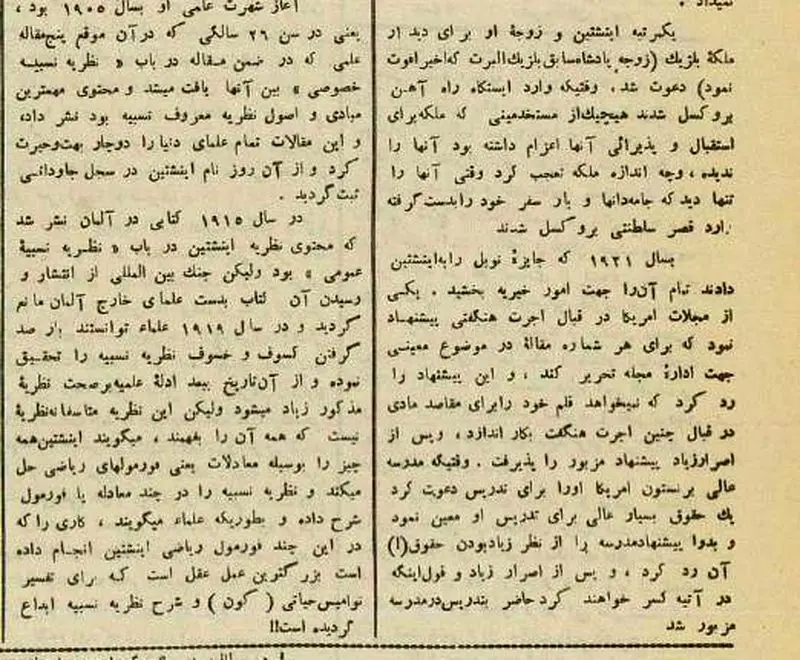 نمیداد .
یکمرتبه اینشتین و زوجهٔ او برای دیدار
ملکهٔ بلژیك (زوجه پادشاه‌سابق‌بلژیك‌آلبرت که‌اخیراً‌فوت
نمود) دعوت شد ، وقتیکه وارد ایستگاه راه آهـن
بروکسل شدند هیچیك‌از مستخدمینی که ملکه‌برای
استقبال و پذیرائی آنها اعزام داشته بود آنها را
ندیده ، وچه اندازه ملکه تعجب کرد وقتی آنها را
تنها دید که جامه‌دانها و بار سفر خود را‌بدست‌گرفته
وارد قصر سلطنتی بروکسل شدند
بسال ۱۹۲۱ که جایزهٔ نوبل را‌به‌اینشتین
دادند تمام آن‌را جهت امور خیریه بخشید . یکـی
از مجلات امریکا در قبال اجرت هنگفتی پیشنهـاد
نمود که برای هر شماره مقالهٔ در موضوع معینـی
جهت ادارهٔ مجله تحریر کند ، و این پیشنهاد را
رد کرد که نمیخواهد قلم خود را‌برای مقاصد مادی
در قبال چنین اجرت هنگفت بکار اندازد ، وپس از
اصرار‌زیاد پیشنهاد مزبور را پذیرفت . وقتیکه مدرسه
عالی برنستون امریکا اورا برای تدریس دعوت کرد
یك حقوق بسیار عالی برای تدریس او معین نمود
و بدوا پیشنهاد‌مدرسه را از نظر زیاد‌بودن حقوق(!)
آن رد کرد ، و پس از اصرار زیاد و قول‌اینکه
در آتیه کسر خواهند کرد‌حاضر بتدریس‌در‌مدرسه
مزبور شد
آغاز شهرت علمی او بسال ۱۹۰۵ بود ،
یعنی در سن ۲۶ سالگی که در‌آن موقع پنج‌مقاله
علمی که در ضمن مقاله در باب « نظریه نسبیـه
خصوصی » بین آنها یافت میشد و محتوی مهمترین
مبادی و اصول نظریه معروف نسبیه بود نشر داد،
و این مقالات تمام علمای دنیا را دوچار بهت‌وحیرت
کرد و از آن روز نام اینشتین در سجل جاودانـی
ثبت گردید .
در سال ۱۹۱۵ کتابی در آلمان نشر شد
که محتوی نظریه اینشتین در باب « نظـریه نسبیهٔ
عمومی » بود ولیکن جنك بین المللی از انتشار و
رسیدن آن کتاب بدست علمای خارج آلمان مانع
گردید و در سال ۱۹۱۹ علماء توانستند باز صد
گرفتن کسوف و خسوف نظریه نسبیه را تحقـیق
نموده و از آن‌تاریخ ببعد ادلهٔ علمیه‌بر‌صحت نظریهٔ
مذکور زیاد میشود ولیکن این نظریه متاسفانه‌نظریهٔ
نیست که همه آن را بفهمند ، میگویند اینشتین‌همه
چیز را بوسیله معادلات یعنی فورمولهای ریاضی حل
میکند و نظریه نسبیه را در چند معادله یا فورمول
شرح داده و بطوریکه علماء میگویند ، کاری را‌که
در این چند فورمول ریاضی اینشتین انجـام داده
است بزرگترین عمل عقل است کـه برای تفسیر
نوامیس‌حیاتی ( کون ) و شرح نظریه نسبیه ابداع
گردیده است!!